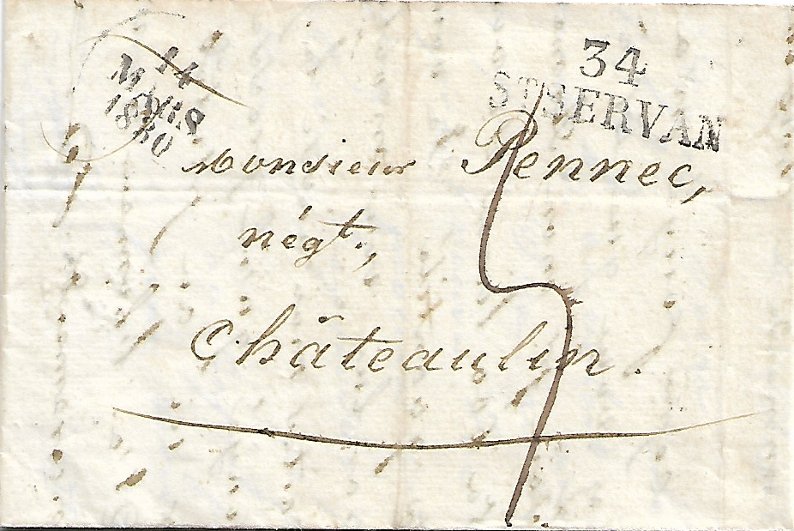 14
MARS
1830
34
ST SERVAN
Monsieur Pennec,
négt.,
Châteaulin.
5